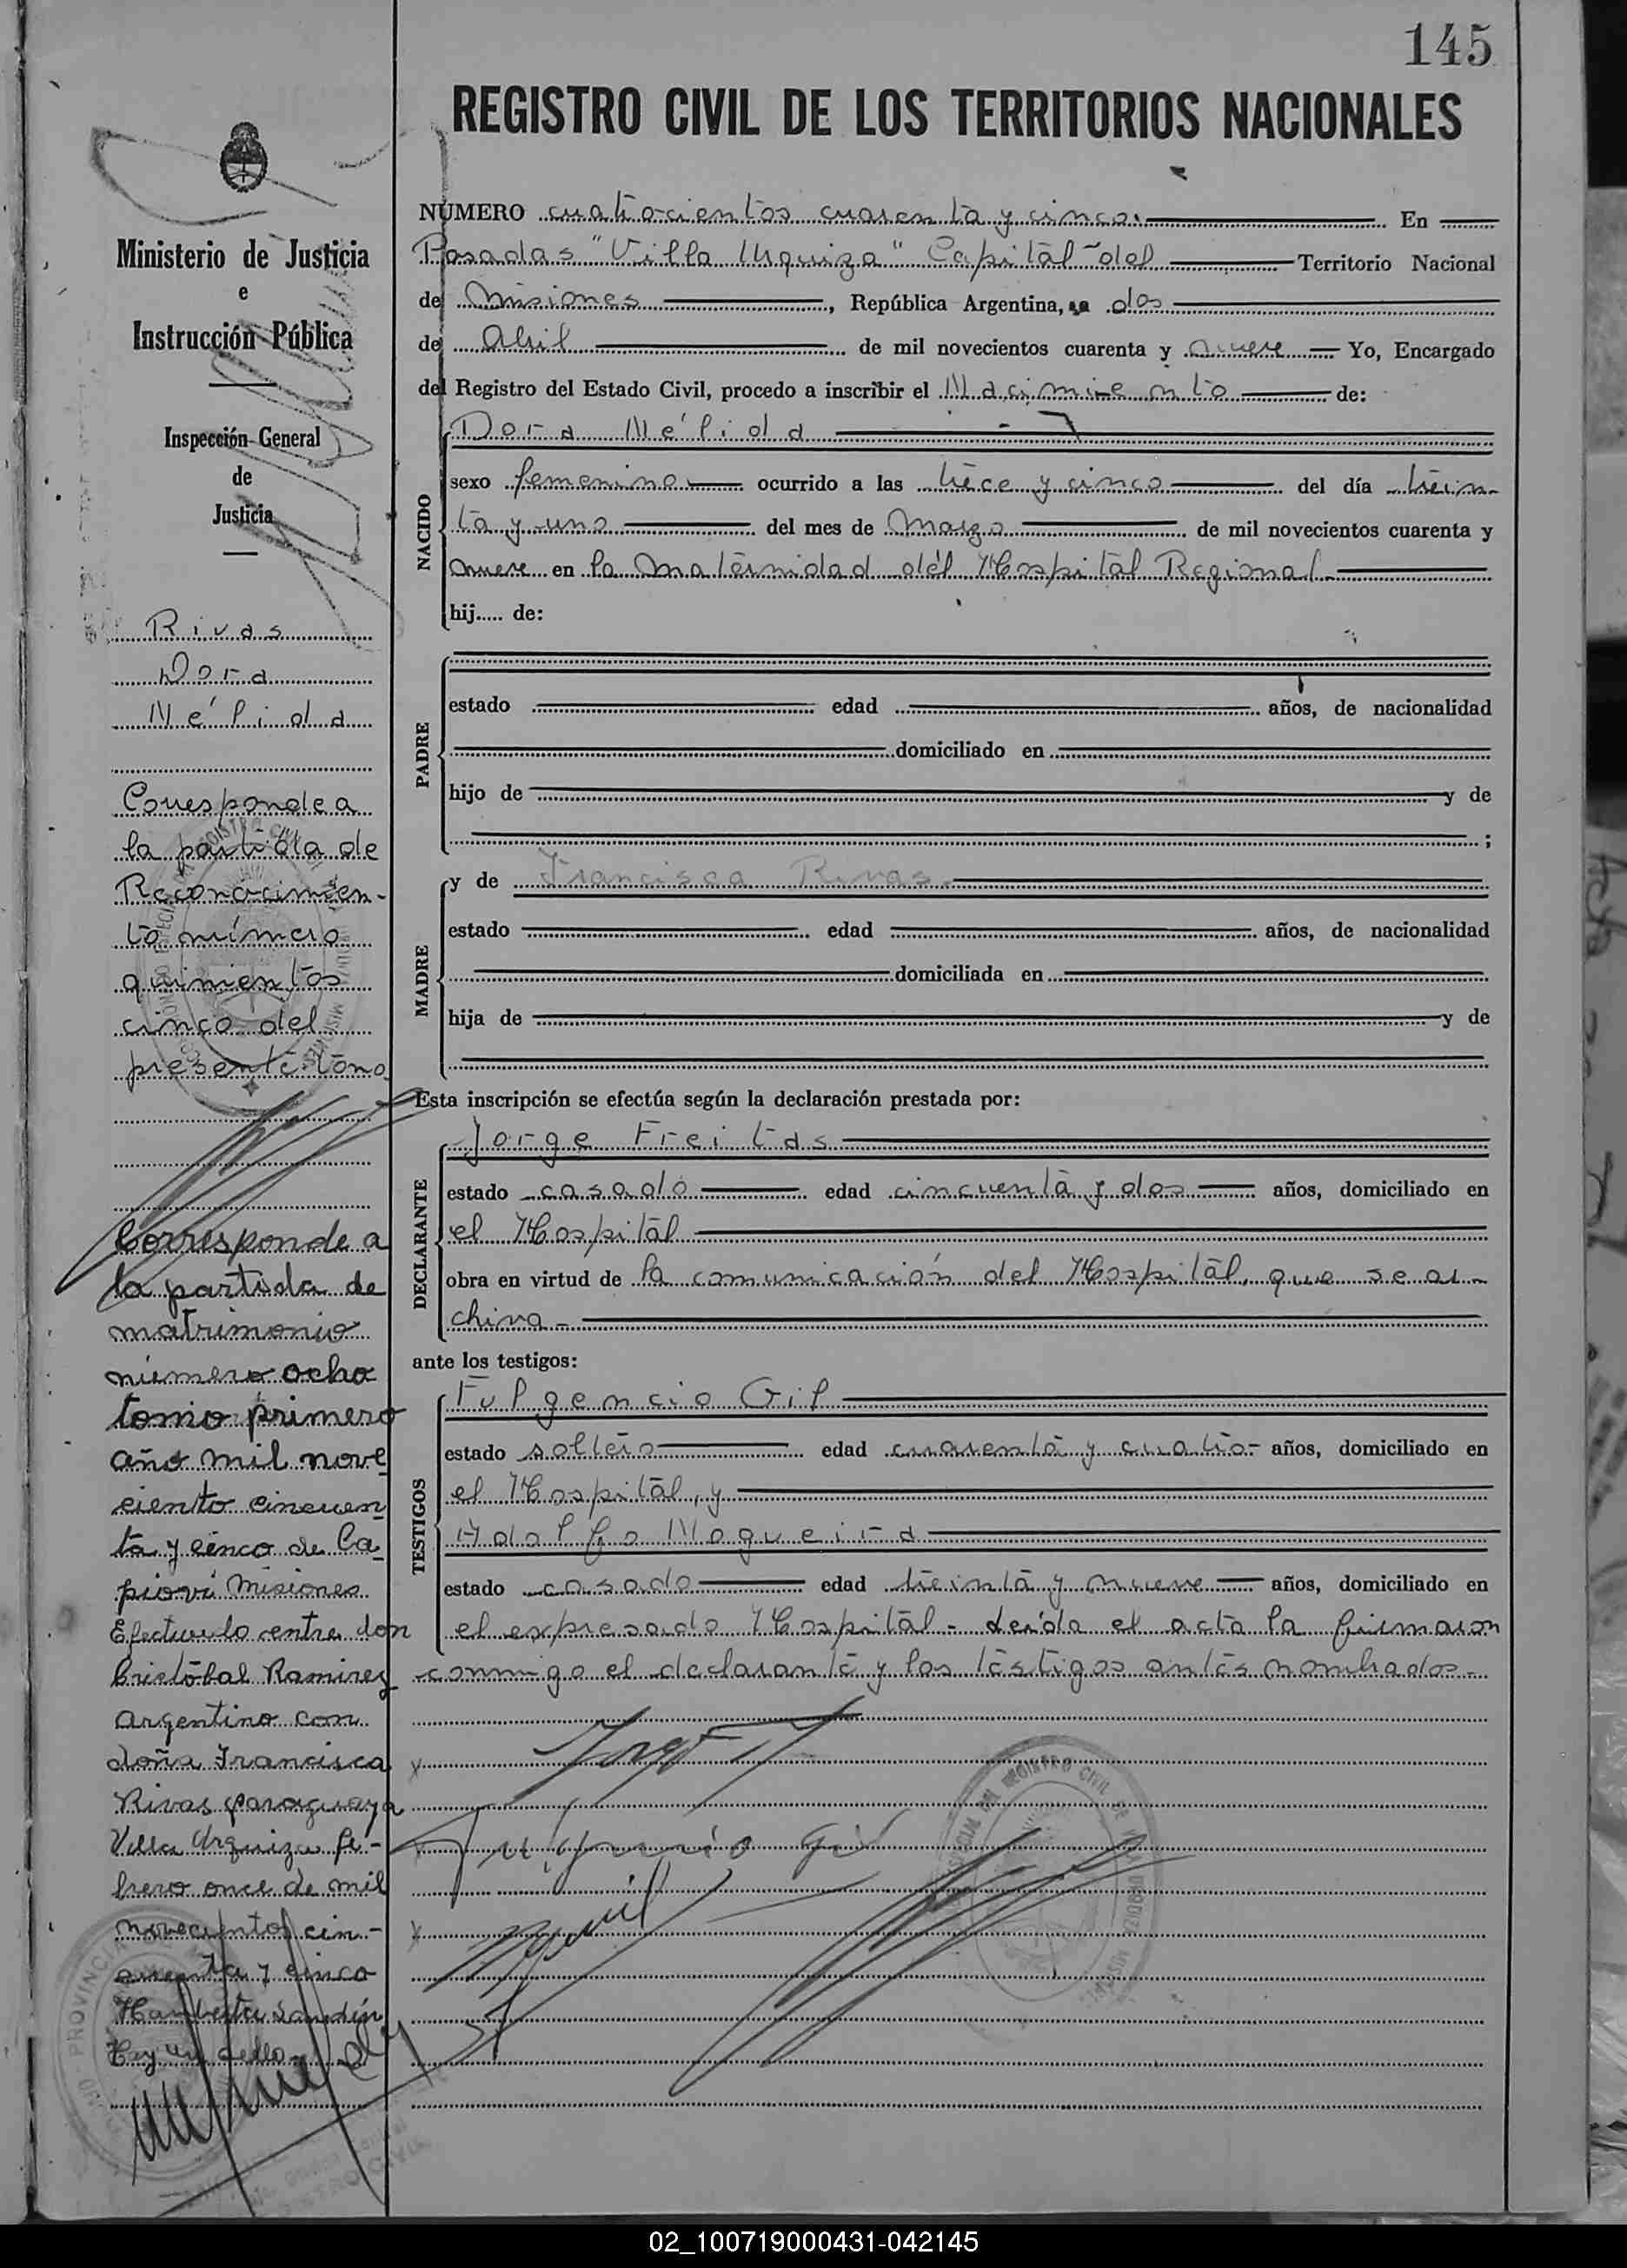 145
REGISTRO CIVIL DE LOS TERRITORIOS NACIONALES
Ministerio de Justicia
e
Instrucción Pública
Inspección General
de
Justicia
Rivas
Dora
Nélida
Corresponde a
la partida de
Reconocimien-
to número
quinientos
cinco del
presente tomo
Corresponde a
la partida de
matrimonio
número ocho
tomo primero
año mil nove
ciento cincuen
ta y cinco de Ca-
piovi Misiones
Efectuulo entre don
Cristóbal Ramirez
argentino con
doña Francisca
Rivas paraguaya
Villa Urquiza fe-
brero once de mil
novecientos cin-
cuenta y cinco
Hay un sello
NUMERO cuatrocientos cuarenta y cinco. En
Posadas "Villa Urquiza" Capital del Territorio Nacional
de Misiones, República Argentina, a dos
de Abril de mil novecientos cuarenta y nueve Yo, Encargado
del Registro del Estado Civil, procedo a inscribir el Nacimiento de:
NACIDO
Dora Nélida
sexo femenino ocurrido a las trece y cinco del día trein-
ta y uno del mes de Marzo de mil novecientos cuarenta y
nueve en la Maternidad del Hospital Regional.
hij..... de:
PADRE
estado edad años, de nacionalidad
domiciliado en
hijo de y de
;
MADRE
y de Francisca Rivas.
estado edad años, de nacionalidad
domiciliada en
hija de y de
Esta inscripción se efectúa según la declaración prestada por:
DECLARANTE
Jorge Freitas
estado casado edad cincuenta y dos años, domiciliado en
el Hospital
obra en virtud de la comunicación del Hospital, que se ar-
chiva-
ante los testigos:
TESTIGOS
Fulgencio Gil
estado soltero edad cuarenta y cuatro- años, domiciliado en
el Hospital, y
Adolfo Nogueira
estado casado edad treinta y nueve años, domiciliado en
el expresado Hospital- Leída el acta la firmaron
conmigo el declarante y los testigos antes nombrados-
02_100719000431-042145